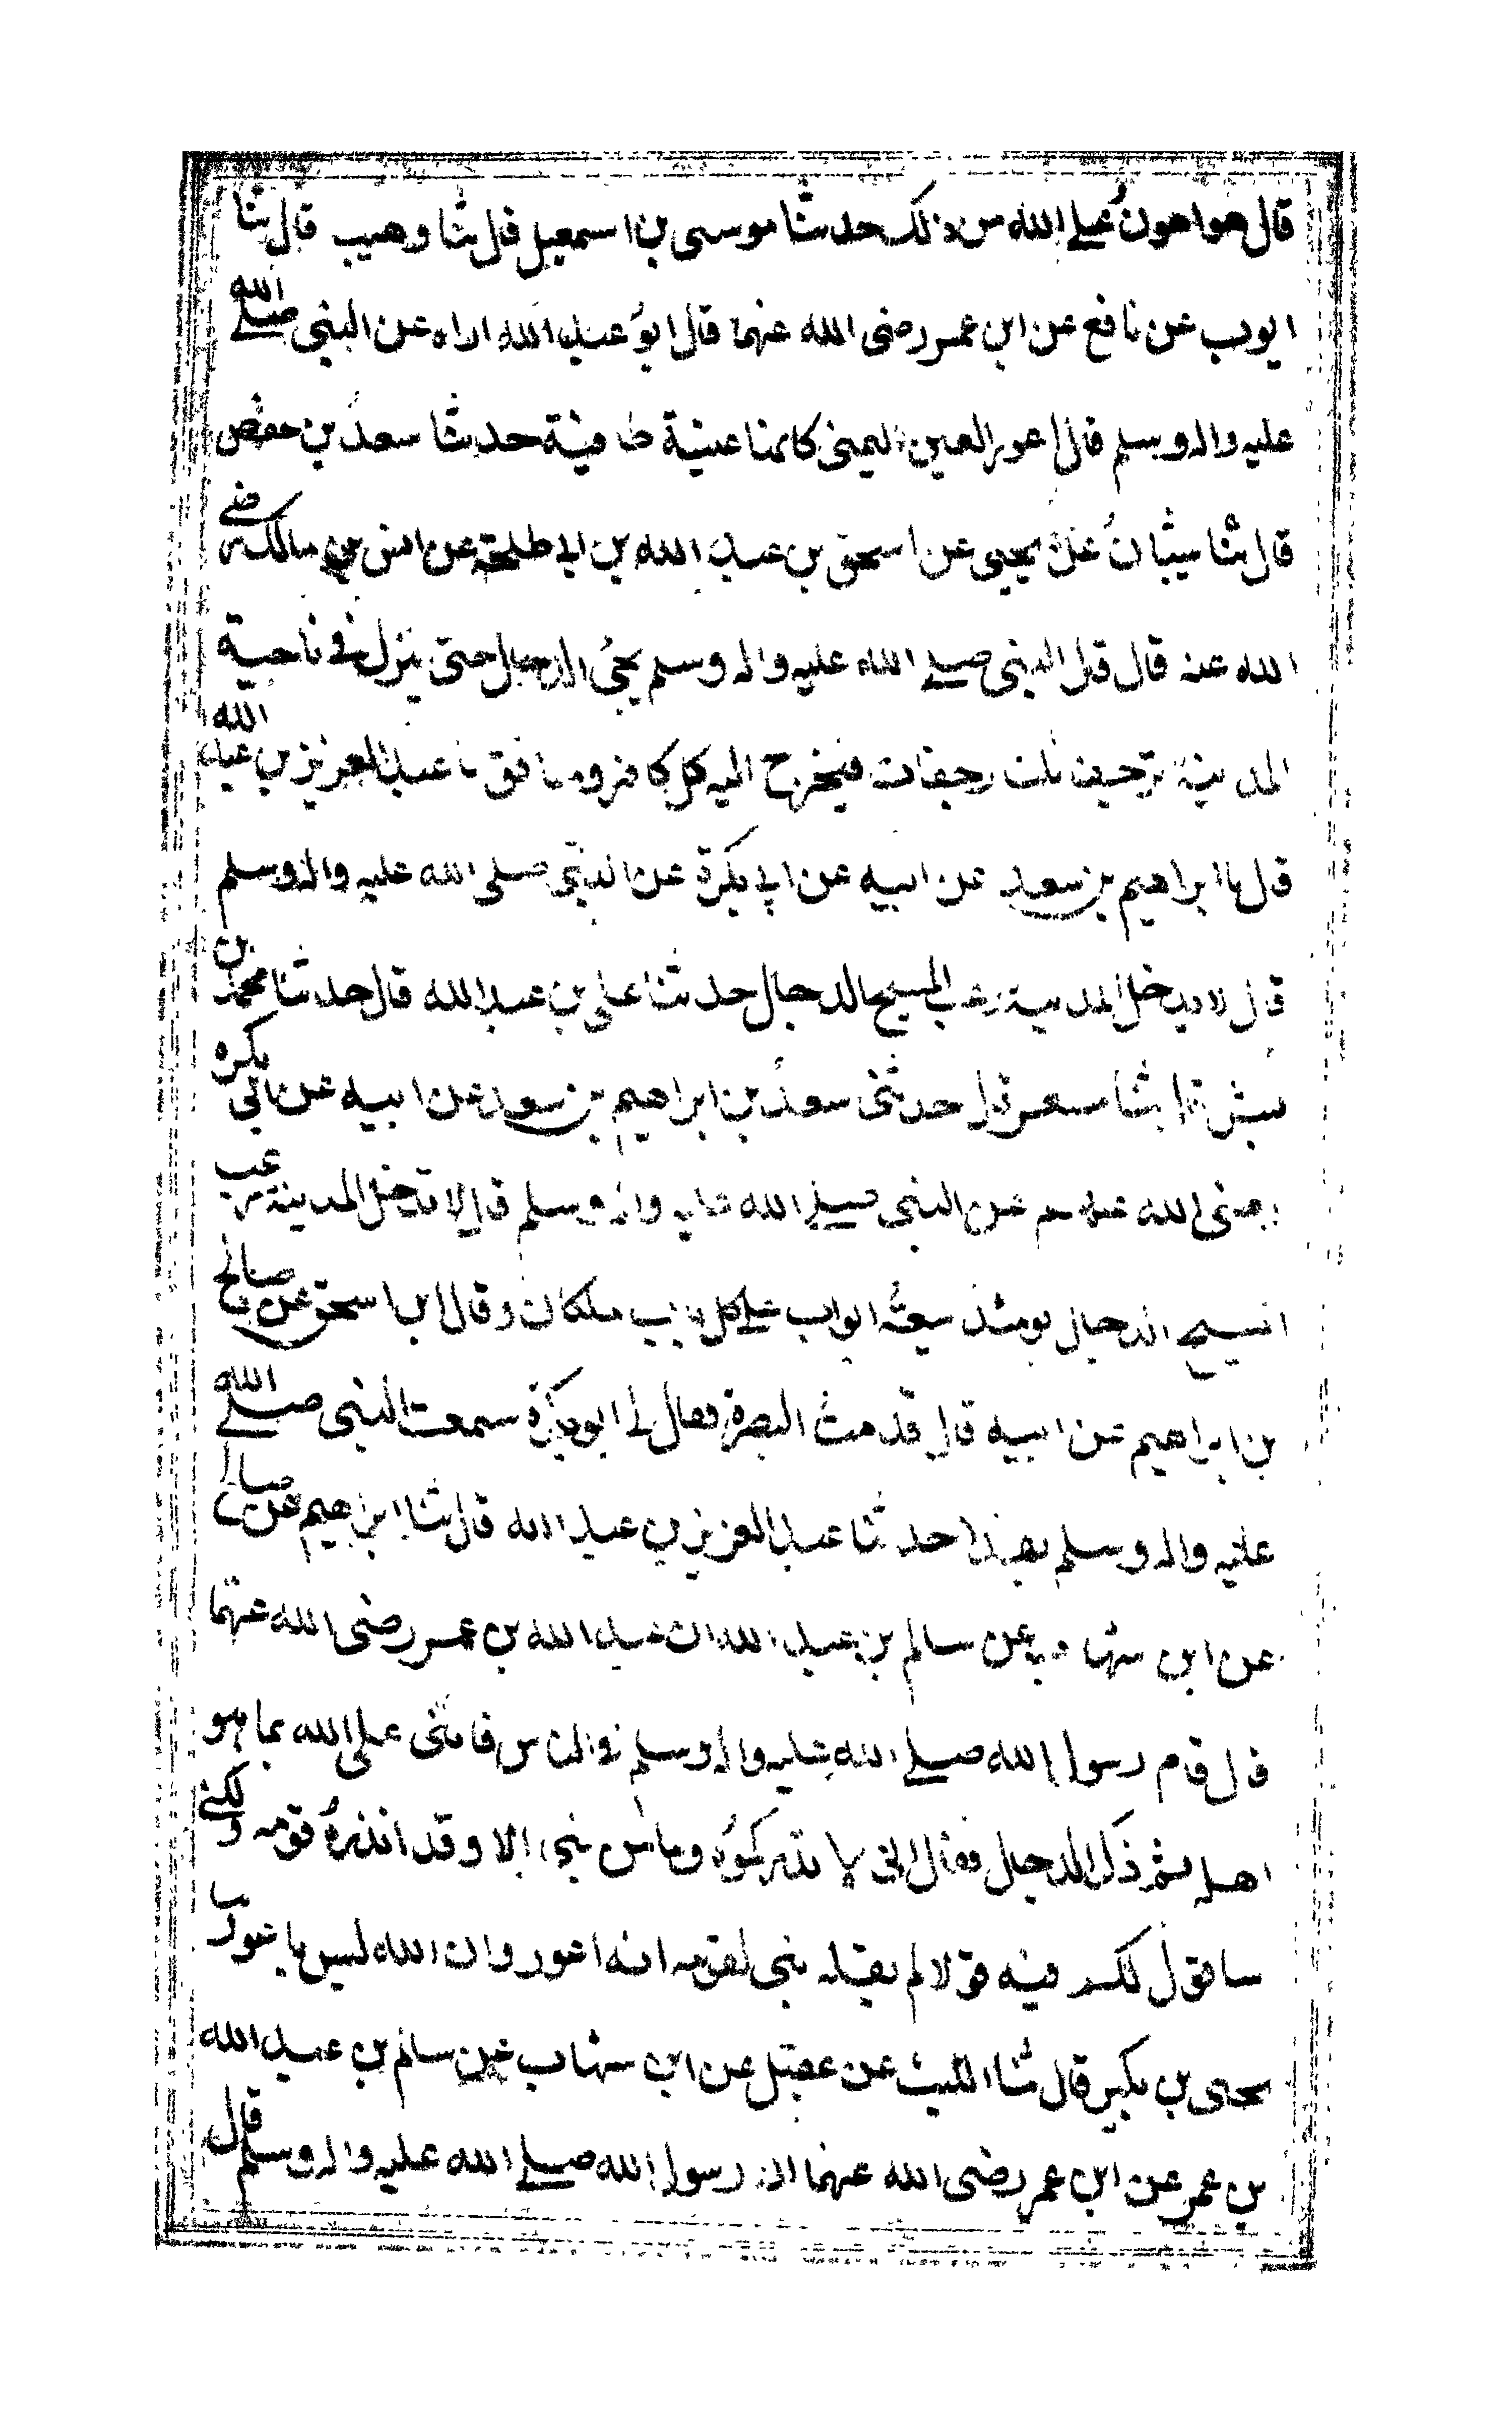 قال هو اهون على الله من ذلك حدثنا موسى بن اسمعيل قال ثنا وهيب قال ثنا
ايوب عن نافع عن ابن عمر رضى الله عنهما قال ابو عبد الله اراه عن النبى صلى الله
عليه واله وسلم قال اعور العين اليمنى كانما عنبة طافية حدثنا سعد بن حفص
قال ثنا شيبان عن يحيى عن اسحق بن عبد الله بن ابى طلحة عن انس بن مالك رضى
الله عنه قال قال النبى صلى الله عليه واله وسلم يجئ الدجال حتى ينزل فى ناحية
المدينة ترجف ثلث رجفات فيخرج اليه كل كافر ومنافق نا عبد العزيز بن عبد الله
قال نا ابراهيم بن سعد عن ابيه عن ابى بكرة عن النبى صلى الله عليه واله وسلم
قال لا يدخل المدينة رعب المسيح الدجال حدثنا على بن عبد الله قال حدثنا محمد بن
بشر قال ثنا مسعر قال حدثنى سعد بن ابراهيم بن سعد عن ابيه عن ابى بكره
رضى الله عنهم عن النبى صلى الله عليه واله وسلم قال لا تدخل المدينة رعب
المسيح الدجال يومئذ سبعة ابواب على كل باب ملكان وقال ابن اسحق عن صالح
بن ابراهيم عن ابيه قال قدمت البصرة فقال لى ابو بكرة سمعت النبى صلى الله
عليه واله وسلم بهذا حدثنا عبد العزيز بن عبد الله قال ثنا ابراهيم عن صالح
عن ابن شهاب عن سالم بن عبد الله ان عبد الله بن عمر رضى الله عنهما
قال قام رسول الله صلى الله عليه واله وسلم فى الناس فاثنى على الله بما هو
اهله ثم ذكر الدجال فقال انى لا نذركموه وما من نبى الا وقد انذره قومه ولكنى
ساقول لكم فيه قولا لم يقله نبى لقومه انه اعور وان الله ليس باعور نا
يحيى بن بكير قال ثنا الليث عن عقيل عن ابن شهاب عن سالم بن عبد الله
بن عمر عن ابن عمر رضى الله عنهما ان رسول الله صلى الله عليه واله وسلم قال